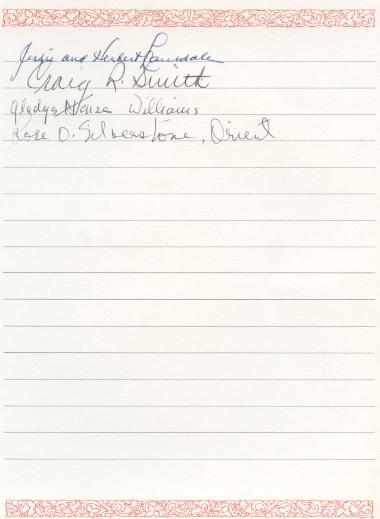 Jessie and Herbert Lonsdale
Craig R. Smith
Gladys Williams
Rose O. Silverstone, Orient